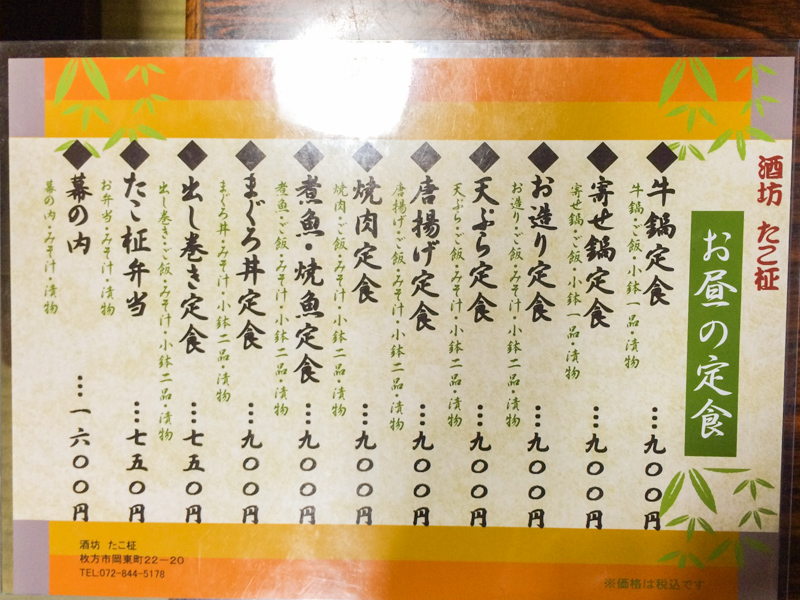 酒坊 たこ柾
お昼の定食
◆牛鍋定食 …九〇〇円
牛鍋・ご飯・小鉢一品・漬物
◆寄せ鍋定食 …九〇〇円
寄せ鍋・ご飯・小鉢一品・漬物
◆お造り定食 …九〇〇円
お造り・ご飯・みそ汁・小鉢二品・漬物
◆天ぷら定食 …九〇〇円
天ぷら・ご飯・みそ汁・小鉢二品・漬物
◆唐揚げ定食 …九〇〇円
唐揚げ・ご飯・みそ汁・小鉢二品・漬物
◆焼肉定食 …九〇〇円
焼肉・ご飯・みそ汁・小鉢二品・漬物
◆煮魚・焼魚定食 …九〇〇円
煮魚・ご飯・みそ汁・小鉢二品・漬物
◆まぐろ丼定食 …九〇〇円
まぐろ丼・みそ汁・小鉢二品・漬物
◆出し巻き定食 …七五〇円
出し巻き・ご飯・みそ汁・小鉢二品・漬物
◆たこ柾弁当 …七五〇円
お弁当・みそ汁・漬物
◆幕の内 …一六〇〇円
幕の内・みそ汁・漬物
酒坊 たこ柾
枚方市岡東町22-20
TEL:072-844-5178
※価格は税込です